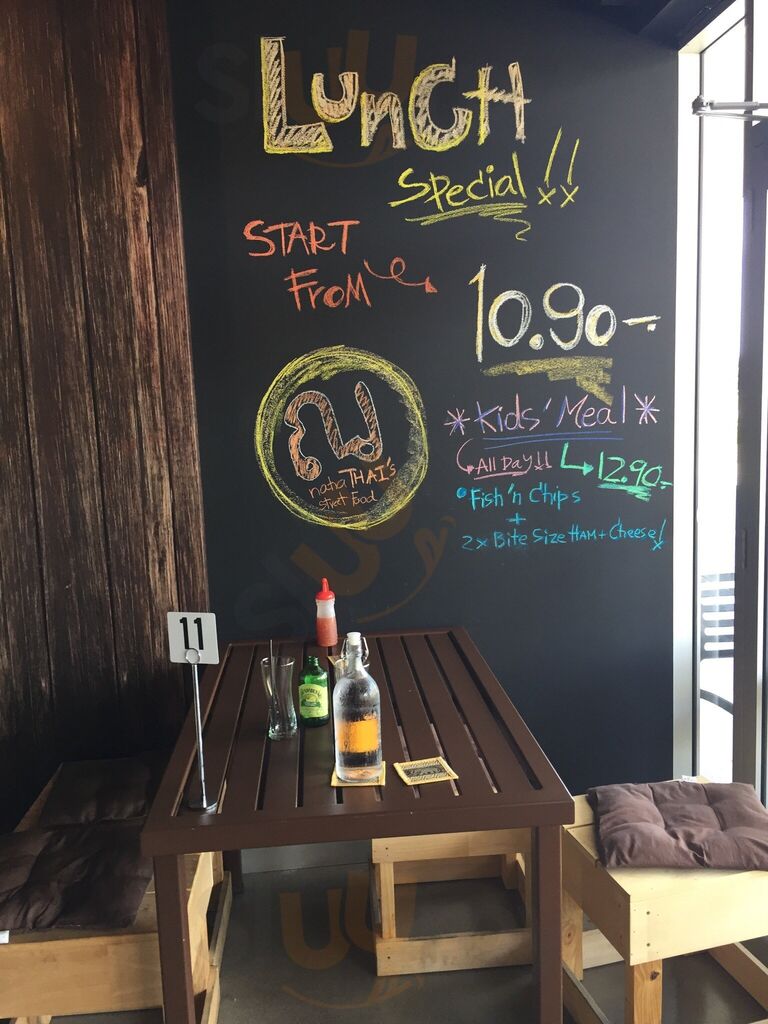 LUNCH
Special!!
START
FROM
10.90-
ณ
naha THAI's
street food
*Kids' Meal*
All Day!!
12.90-
Fish 'n Chips
+
2x Bite Size HAM + Cheese!
11